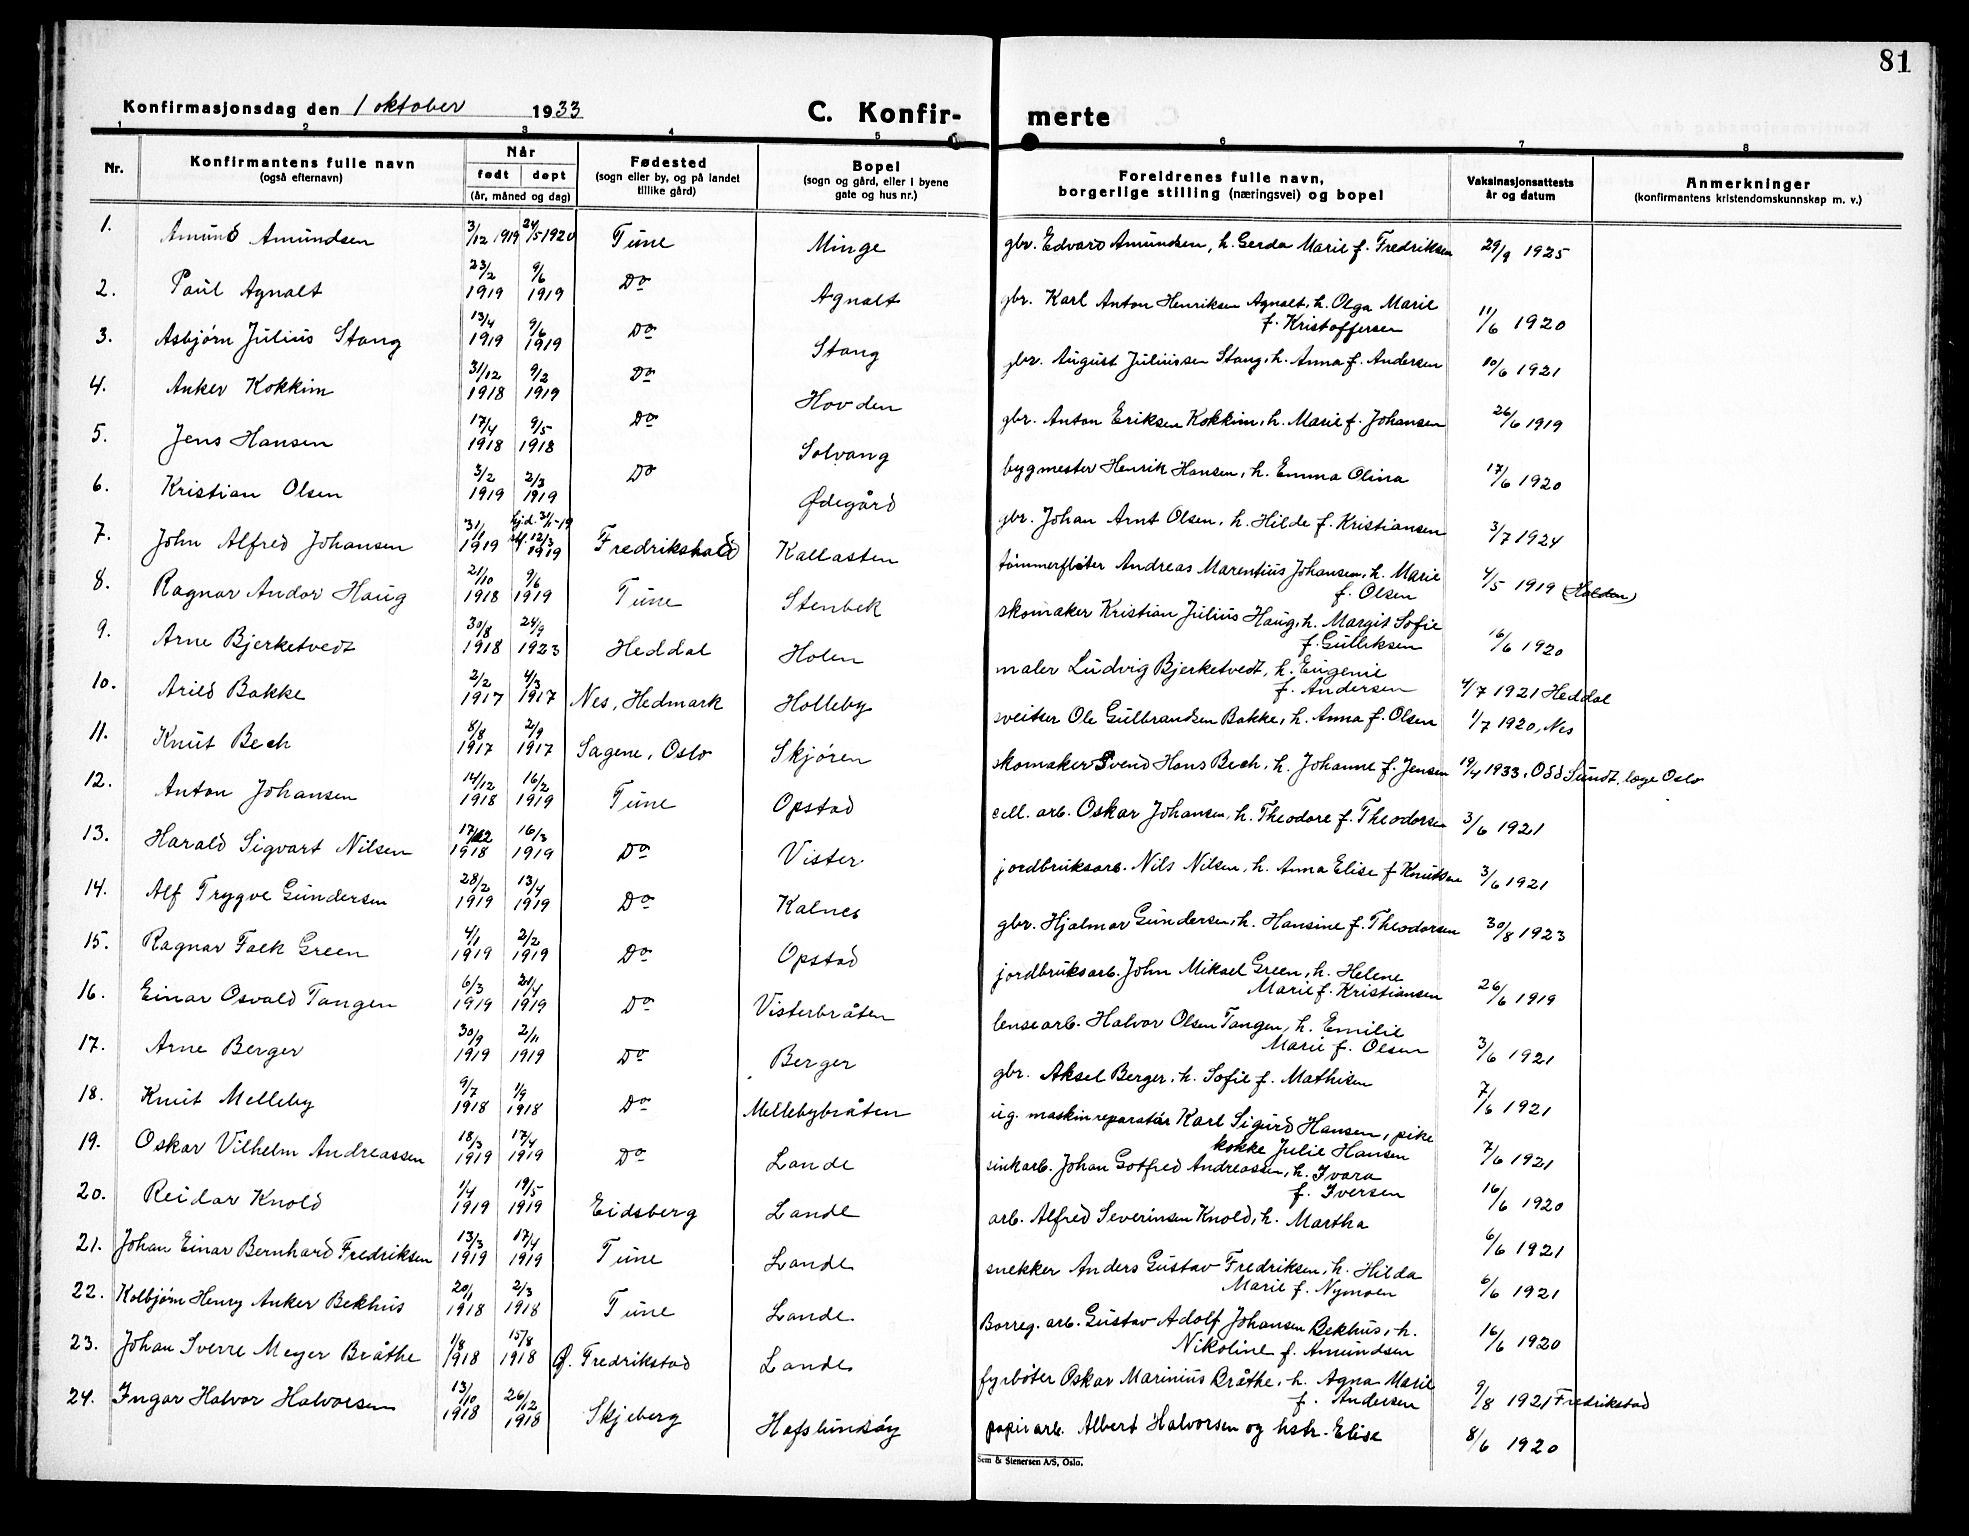 81
Konfirmasjonsdag den 1 oktober 1933
C. Konfir-
merte
1 2 3 4 5 6 7 8
Nr.
Konfirmantens fulle navn
(også efternavn)
Når
født døpt
(år, måned og dag)
Fødested
(sogn eller by, og på landet
tillike gård)
Bopel
(sogn og gård, eller i byene
gate og hus nr.)
Foreldrenes fulle navn,
borgerlige stilling (næringsvei) og bopel
Vaksinasjonsattests
år og datum
Anmerkninger
(konfirmantens kristendomskunnskap m. v.)
1. Amund Amundsen 3/12 1919 24/5 1920 Tune Minge gbr. Edvard Amundsen, h. Gerda Marie f. Fredriksen 29/9 1925
2. Paul Agnalt 23/2 1919 9/6 1919 Do Agnalt gbr. Karl Anton Henriksen Agnalt, h. Olga Marie
f. Kristoffersen 11/6 1920
3. Asbjørn Julius Stang 13/4 1919 9/6 1919 Do Stang gbr. August Juliussen Stang, h. Anna f. Andersen 10/6 1921
4. Anker Kokkim 31/12 1918 9/2 1919 Do Hovden gbr. Anton Eriksen Kokkim, h. Marie f. Johansen 26/6 1919
5. Jens Hansen 17/4 1918 9/5 1918 Do Solvang bygmester Henrik Hansen, h. Emma Olina 17/6 1920
6. Kristian Olsen 3/2 1919 2/3 1919 Do Ødegård gbr. Johan Arnt Olsen, h. Hilde f. Kristiansen 3/7 1924
7. John Alfred Johansen 31/1 1919 hj.d. 31/1-19 12/3 1919 Fredrikshald Kallasten tømmerfløter Andreas Marentius Johansen, h. Marie
f. Olsen 4/5 1919 (Halden)
8. Ragnar Andor Haug 21/10 1918 9/6 1919 Tune Stenbek skomaker Kristian Julius Haug, h. Margit Sofie
f. Gulliksen 16/6 1920
9. Arne Bjerketvedt 30/8 1918 24/9 1923 Heddal Holen maler Ludvig Bjerketvedt, h. Eugenie
f. Andersen 4/7 1921 Heddal
10. Arild Bakke 2/2 1917 4/3 1917 Nes, Hedmark Holleby sveitser Ole Gulbrandsen Bakke, h. Anna f. Olsen 1/7 1920, Nes
11. Knut Bech 8/8 1917 2/9 1917 Sagene, Oslo Skjøren skomaker Svend Hans Bech, h. Johanne f. Jensen 19/4 1933, Odd Sundt, læge Oslo
12. Anton Johansen 14/12 1918 16/2 1919 Tune Opstad cell. arb. Oskar Johansen, h. Theodore f. Theodorsen 3/6 1921
13. Harald Sigvart Nilsen 17/12 1918 16/3 1919 Do Vister jordbruksarb. Nils Nilsen, h. Anna Elise f Knutsen 3/6 1921
14. Alf Trygve Gundersen 28/2 1919 13/4 1919 Do Kalnes gbr. Hjalmar Gundersen, h. Hansine f. Theodorsen 30/8 1923
15. Ragnar Falk Green 4/1 1919 2/2 1919 Do Opstad jordbruksarb. John Mikael Green, h. Helene
Marie f. Kristiansen 26/6 1919
16. Einar Osvald Tangen 6/3 1919 21/4 1919 Do Visterbråten lensearb. Halvor Olsen Tangen, h. Emilie
Marie f. Olsen 3/6 1921
17. Arne Berger 30/9 1919 2/11 1919 Do Berger gbr. Aksel Berger, h. Sofie f. Mathisen 7/6 1921
18. Knut Melleby 9/7 1918 1/9 1918 Do Mellebybråten ug. maskinreparatør Karl Sigurd Hansen, pike
kokke Julie Hansen 7/6 1921
19. Oskar Vilhelm Andreassen 18/3 1919 17/4 1919 Do Lande sinkarb. Johan Gotfred Andreassen, h. Ivara
f. Iversen 16/6 1920
20. Reidar Knold 1/4 1919 19/5 1919 Eidsberg Lande arb. Alfred Severinsen Knold, h. Martha 6/6 1921
21. Johan Einar Bernhard Fredriksen 13/3 1919 17/4 1919 Tune Lande snekker Anders Gustav Fredriksen, h. Hilda
Marie f. Nymoen 6/6 1921
22. Kolbjørn Henry Anker Bekhus 20/1 1918 2/3 1918 Tune Lande Borreg. arb. Gustav Adolf Johansen Bekhus, h.
Nikoline f. Amundsen 16/6 1920
23. Johan Sverre Meyer Bråthe 1/8 1918 15/8 1918 Ø. Fredrikstad Lande fyrbøter Oskar Marinius Bråthe, h. Agna Marie
f. Andersen 9/8 1921 Fredrikstad
24. Ingar Halvor Halvorsen 13/10 1918 26/12 1918 Skjeberg Hafslundsøy papirarb. Albert Halvorsen og hstr. Elise 8/6 1920
Sem & Stenersen A/S, Oslo.